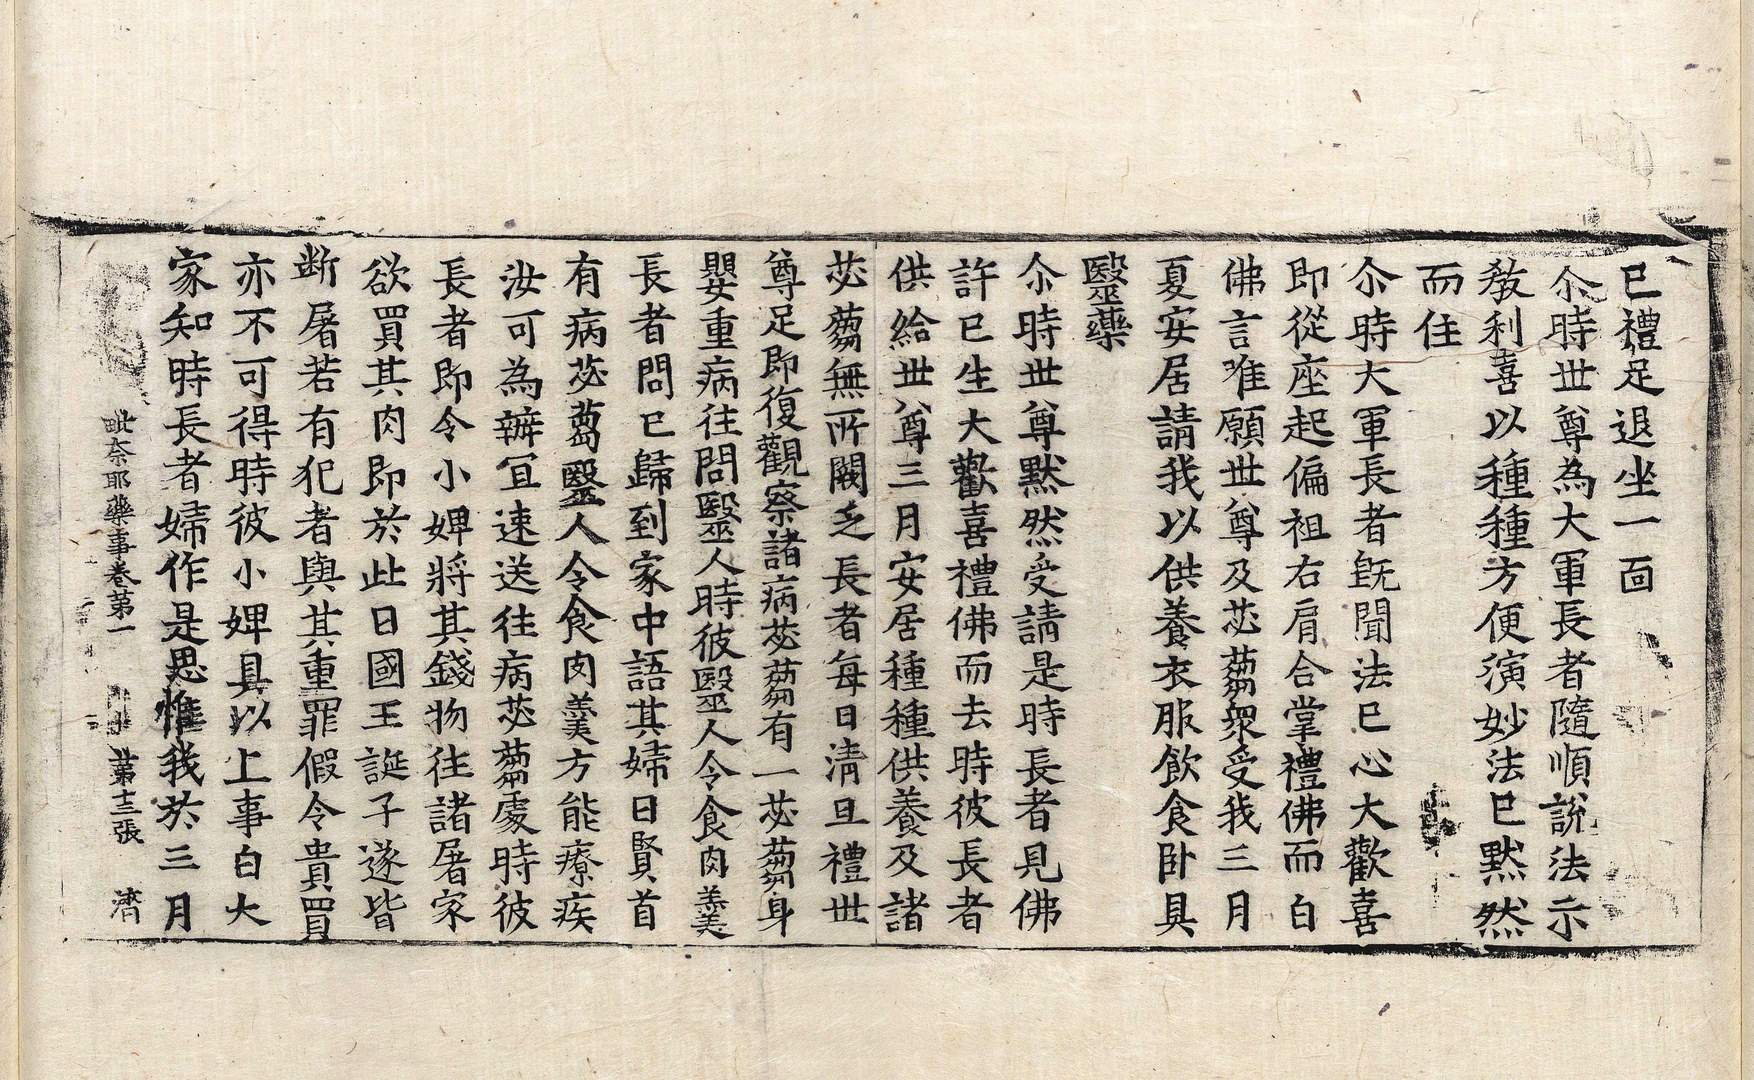 已禮足退坐一面
尒時世尊為大軍長者隨順說法示
教利喜以種種方便演妙法已黙然
而住
尒時大軍長者旣聞法已心大歡喜
即從座起偏袒右肩合掌禮佛而白
佛言唯願世尊及苾蒭衆受我三月
夏安居請我以供養衣服飲食卧具
毉藥
尒時世尊黙然受請是時長者見佛
許已生大歡喜禮佛而去時彼長者
供給世尊三月安居種種供養及諸
苾蒭無所闕乏長者每日清旦禮世
尊足即復觀察諸病苾蒭有一苾蒭身
嬰重病往問毉人時彼毉人令食肉羹
長者問已歸到家中語其婦曰賢首
有病苾蒭毉人令食肉羹方能療疾
汝可為辦冝速送往病苾蒭處時彼
長者即令小婢將其錢物往諸屠家
欲買其肉即於此日國王誕子遂皆
断屠若有犯者與其重罪假令貴買
亦不可得時彼小婢具以上事白大
家知時長者婦作是思惟我於三月
毗奈耶藥事卷苐一 苐十三張 濟